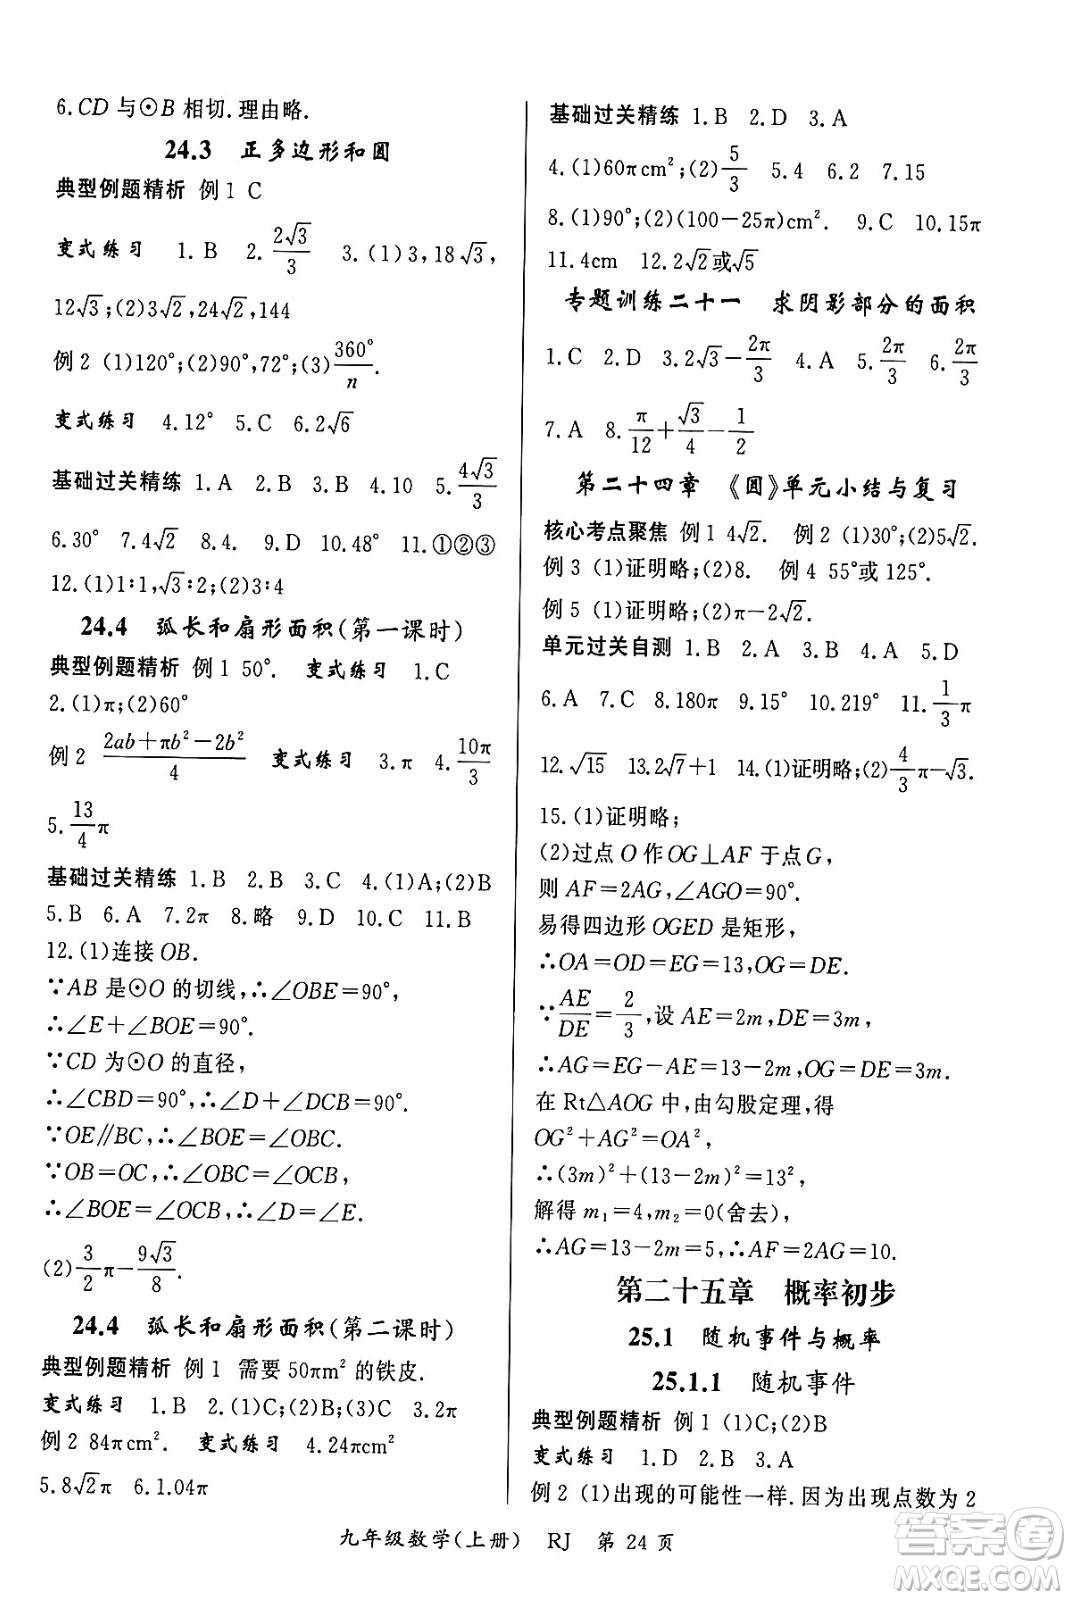 6.CD与⊙B相切.理由略.
24.3 正多边形和圆
典型例题精析 例1 C
变式练习 1.B 2.2√3/3 3.(1)3,18√3,
12√3;(2)3√2,24√2,144
例2 (1)120°;(2)90°,72°;(3)360°/n.
变式练习 4.12° 5.C 6.2√6
基础过关精练 1.A 2.B 3.B 4.D 5.4√3/3
6.30° 7.4√2 8.4. 9.D 10.48° 11.①②③
12.(1)1∶1,√3∶2;(2)3∶4
24.4 弧长和扇形面积(第一课时)
典型例题精析 例1 50°. 变式练习 1.C
2.(1)π;(2)60°
例2 (2ab+πb²-2b²)/4 变式练习 3.π 4.10π/3
5.13/4π
基础过关精练 1.B 2.B 3.C 4.(1)A;(2)B
5.B 6.A 7.2π 8.略 9.D 10.C 11.B
12.(1)连接OB.
∵AB是⊙O的切线,∴∠OBE=90°,
∴∠E+∠BOE=90°.
∵CD为⊙O的直径,
∴∠CBD=90°,∴∠D+∠DCB=90°.
∵OE∥BC,∴∠BOE=∠OBC.
∵OB=OC,∴∠OBC=∠OCB,
∴∠BOE=∠OCB,∴∠D=∠E.
(2)3/2π-9√3/8.
24.4 弧长和扇形面积(第二课时)
典型例题精析 例1 需要50πm²的铁皮.
变式练习 1.B 2.(1)C;(2)B 3.2π
例2 84πcm². 变式练习 4.24πcm²
5.8√2π 6.1.04π
基础过关精练 1.B 2.D 3.A
4.(1)60πcm²;(2)5/3 5.4 6.2 7.15
8.(1)90°;(2)(100-25π)cm². 9.C 10.15π
11.4cm 12.2√2或√5
专题训练二十一 求阴影部分的面积
1.C 2.D 3.2√3-2π/3 4.A 5.2π/3 6.2π/3
7.A 8.π/12+√3/4-1/2
第二十四章 《圆》单元小结与复习
核心考点聚焦 例1 4√2. 例2 (1)30°;(2)5√2.
例3 (1)证明略;(2)8. 例4 55°或125°.
例5 (1)证明略;(2)π-2√2.
单元过关自测 1.B 2.A 3.B 4.A 5.D
6.A 7.C 8.180π 9.15° 10.219° 11.1/3π
12.√15 13.2√7+1 14.(1)证明略;(2)4/3π-√3.
15.(1)证明略;
(2)过点O作OG⊥AF于点G,
则AF=2AG,∠AGO=90°.
易得四边形OGED是矩形,
∴OA=OD=EG=13,OG=DE.
∵AE/DE=2/3,设AE=2m,DE=3m,
∴AG=EG-AE=13-2m,OG=DE=3m,
在Rt△AOG中,由勾股定理,得
OG²+AG²=OA²,
∴(3m)²+(13-2m)²=13²,
解得m₁=4,m₂=0(舍去),
∴AG=13-2m=5,∴AF=2AG=10.
第二十五章 概率初步
25.1 随机事件与概率
25.1.1 随机事件
典型例题精析 例1 (1)C;(2)B
变式练习 1.D 2.A 3.C
例2 (1)出现的可能性一样.因为出现点数为2
九年级数学(上册) RJ 第24页
作业精灵
MXQE.COM